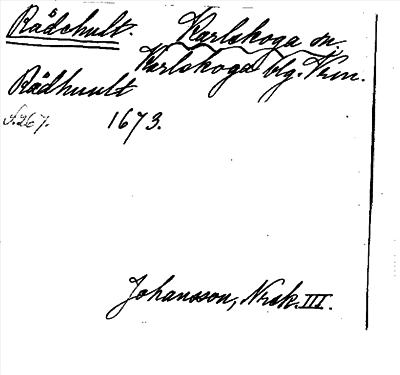 Rådshult. Karlskoga sn.
Karlskoga blg. Vrm.
Rådhuult
S. 267. 1673.
Johansson, Nrsk. III.